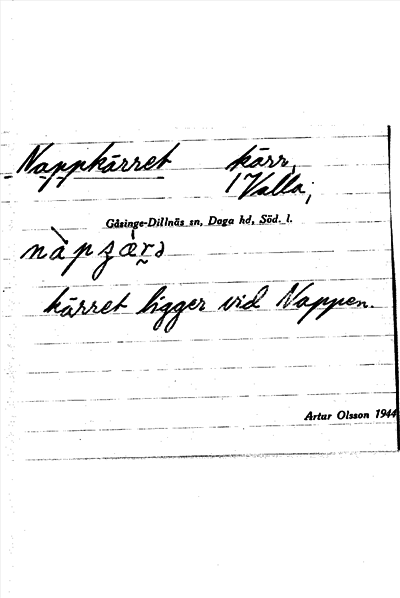 Nappkärret kärr,
1 Valla;
Gåsinge-Dillnäs sn, Daga hd, Söd. l.
kärret ligger vid Nappen.
Artur Olsson 1944